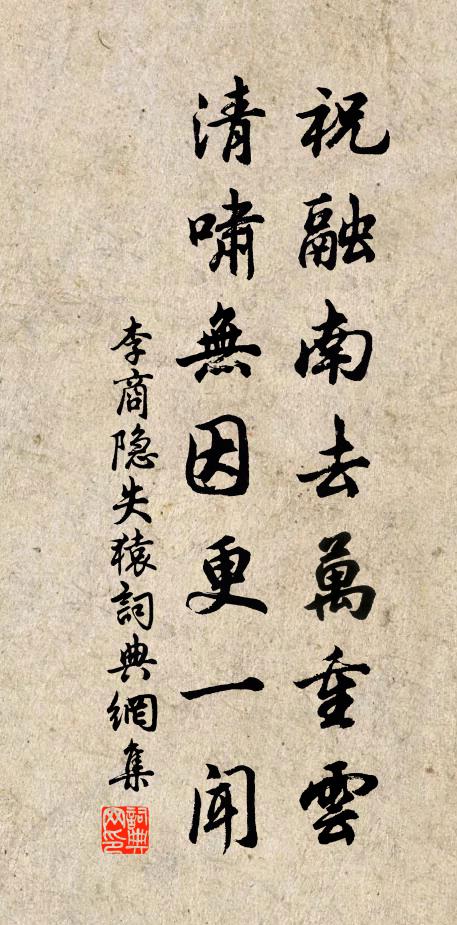 祝融南去萬重雲
清嘯無因更一聞
李商隐失猿詞典網集
詞典網印